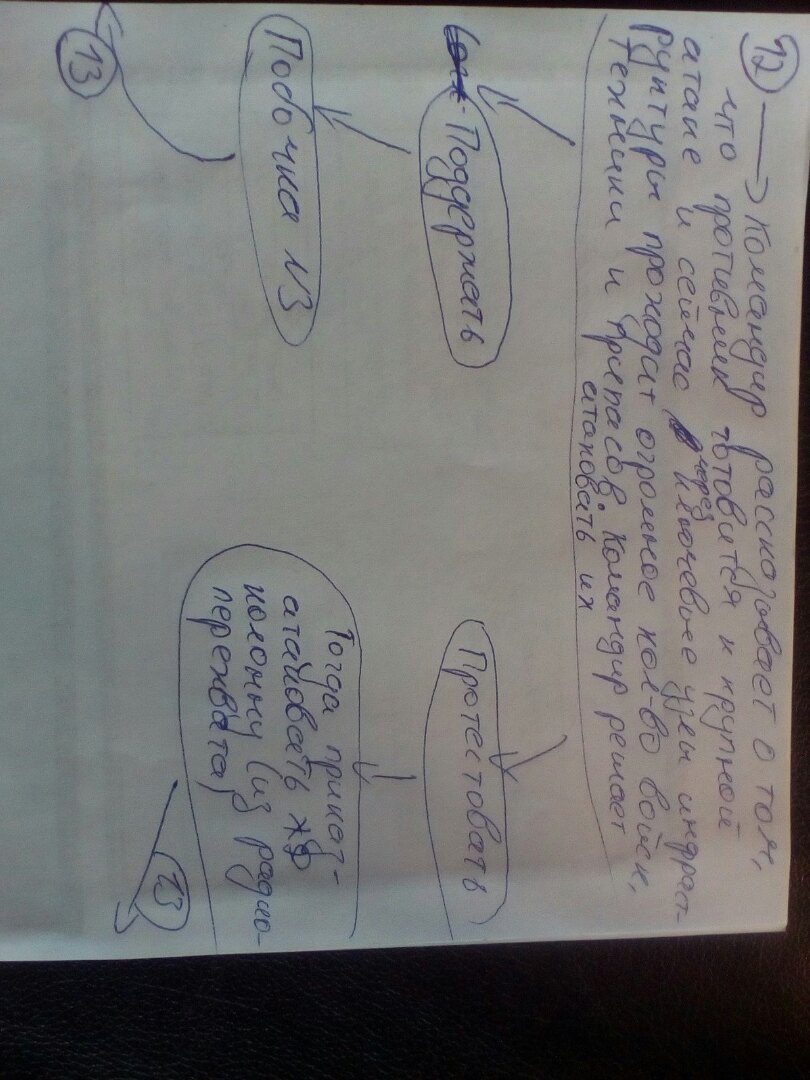 12 → Командир рассказывает о том,
что противник готовится к крупной
атаке и сейчас через ключевые узлы инфраст-
руктуры проходит огромное кол-во войск,
техники и припасов. Командир решает
атаковать их
Поддержать
Протестовать
Побочка №3
Тогда приказ-
атаковать жд
колонну (из радио-
перехвата)
13
13